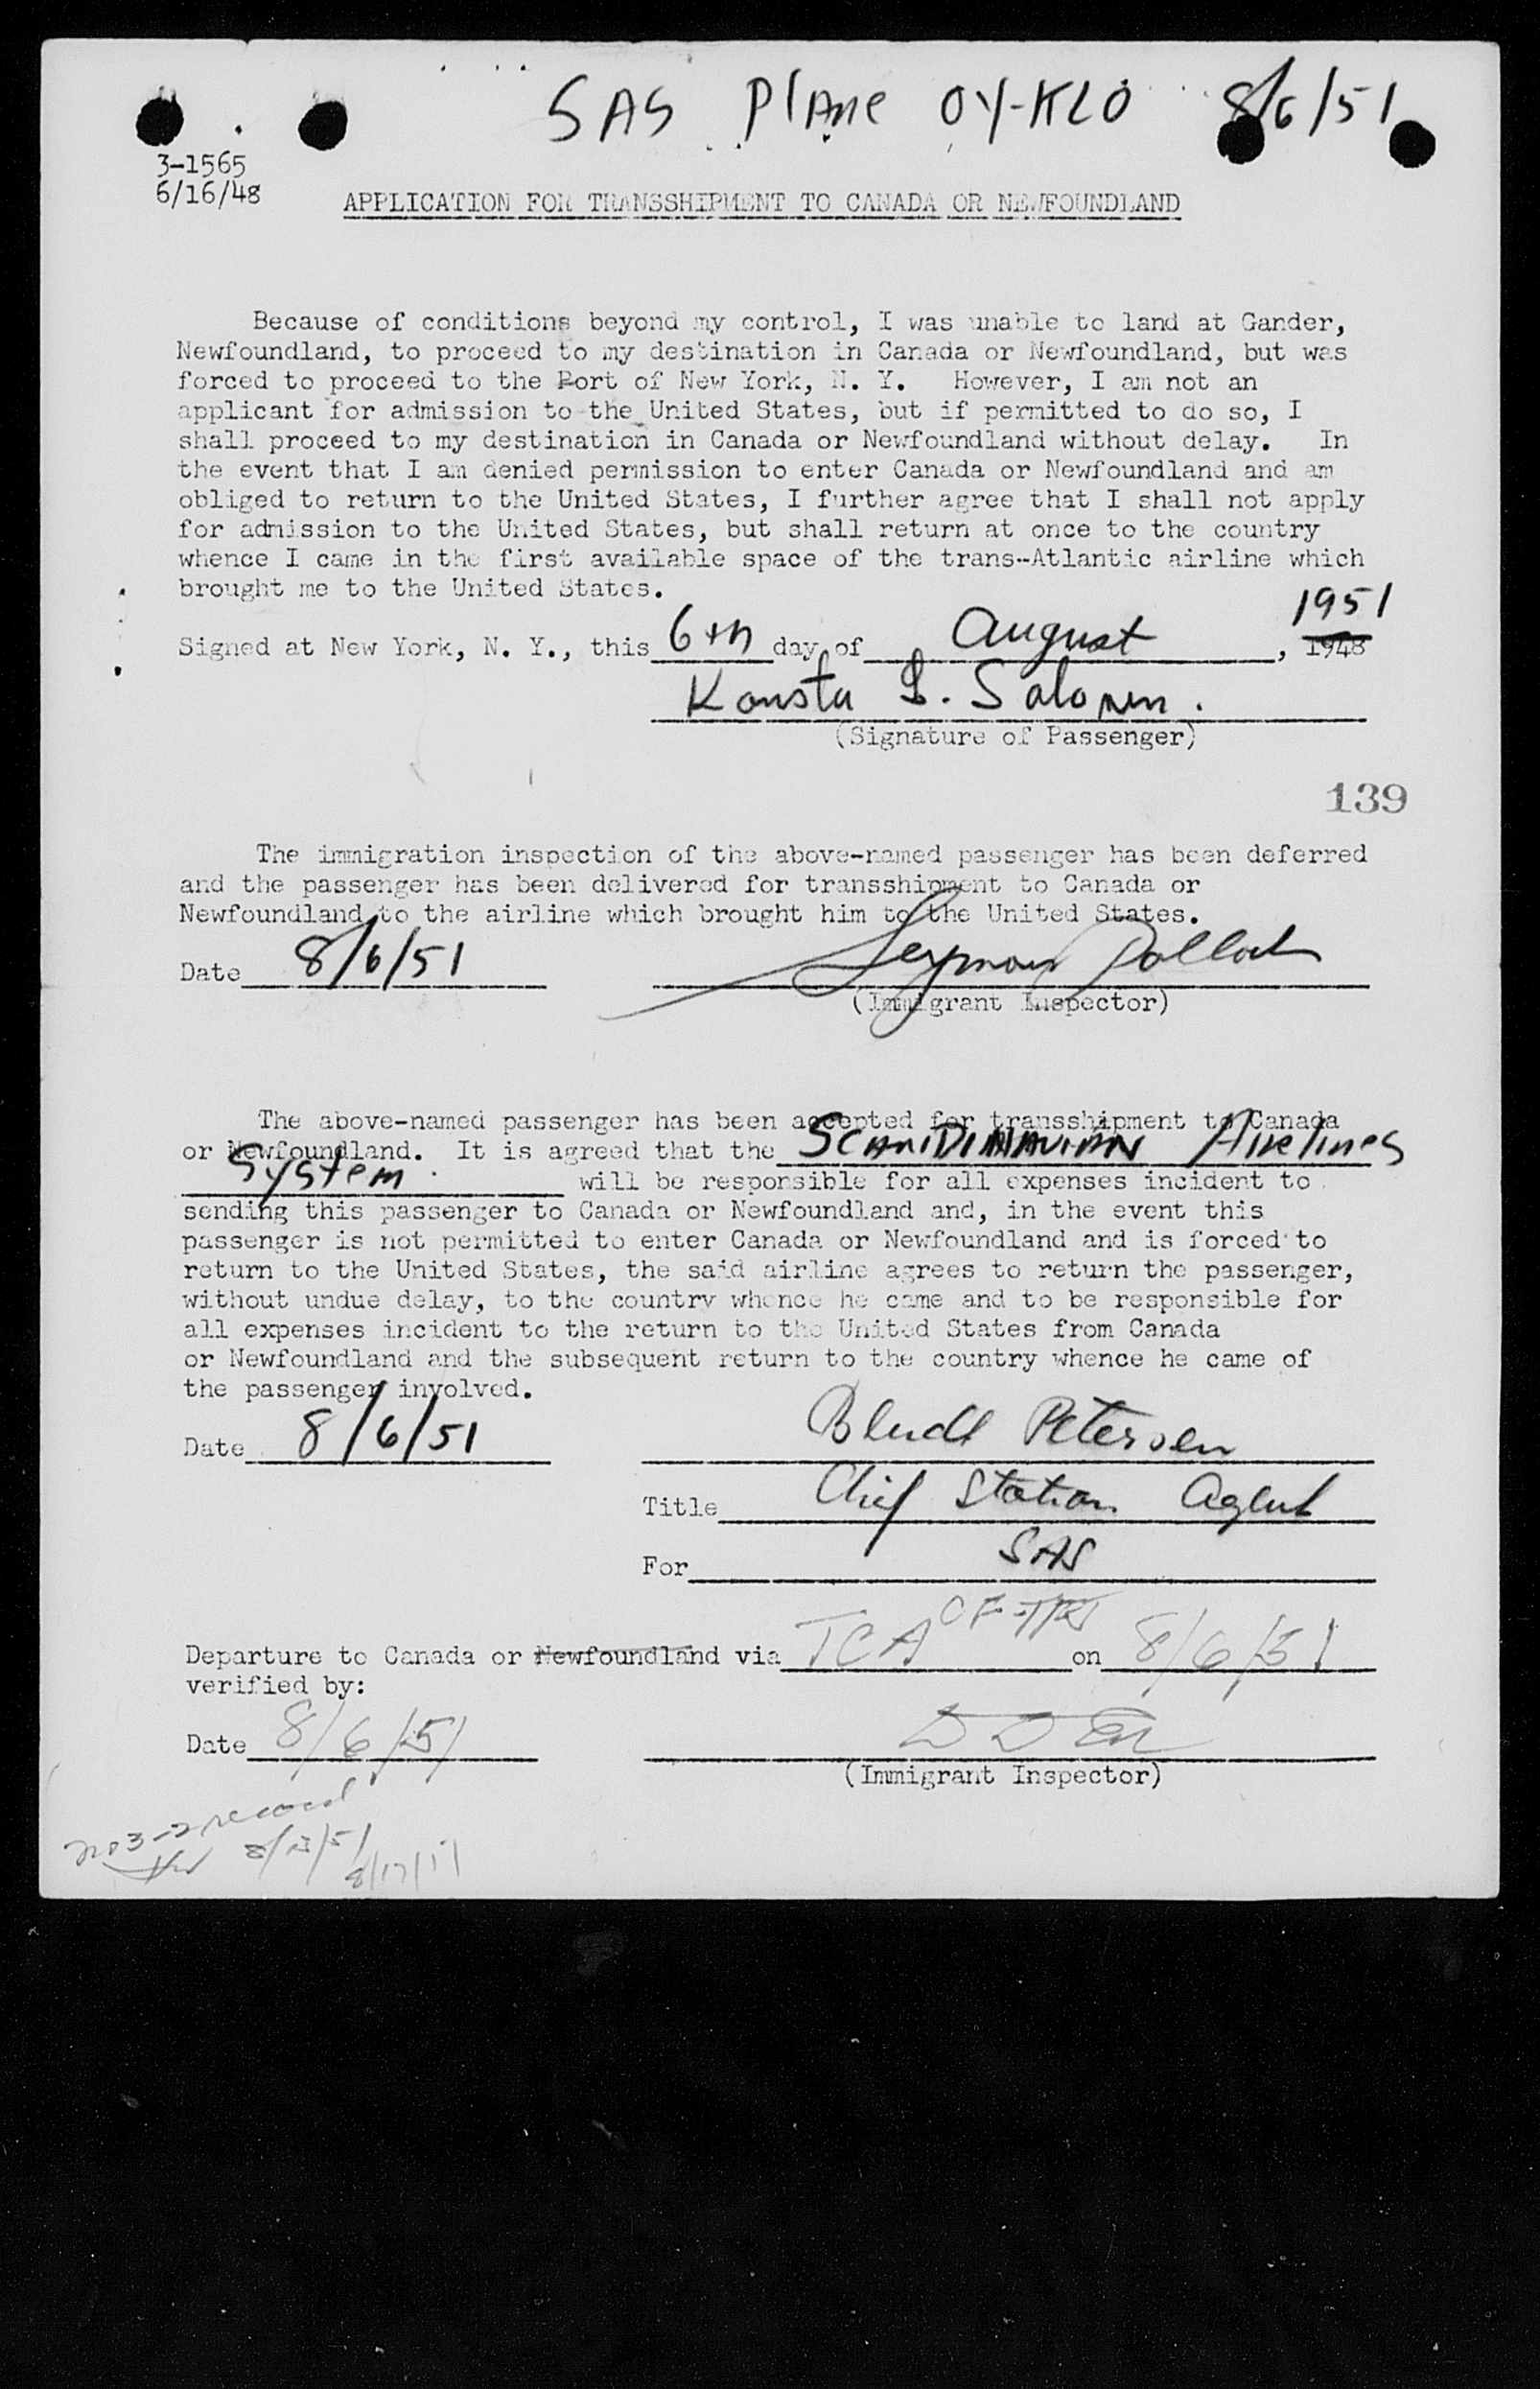 SAS Plane OY-KLO 8/6/51
3-1565
6/16/48
APPLICATION FOR TRANSSHIPMENT TO CANADA OR NEWFOUNDLAND
Because of conditions beyond my control, I was unable to land at Gander,
Newfoundland, to proceed to my destination in Canada or Newfoundland, but was
forced to proceed to the Port of New York, N. Y. However, I am not an
applicant for admission to the United States, but if permitted to do so, I
shall proceed to my destination in Canada or Newfoundland without delay. In
the event that I am denied permission to enter Canada or Newfoundland and am
obliged to return to the United States, I further agree that I shall not apply
for admission to the United States, but shall return at once to the country
whence I came in the first available space of the trans--Atlantic airline which
brought me to the United States.
1951
Signed at New York, N. Y., this 6th day of August, 1948
Konsta S. Salonen.
(Signature of Passenger)
139
The immigration inspection of the above-named passenger has been deferred
and the passenger has been delivered for transshipment to Canada or
Newfoundland to the airline which brought him to the United States.
Date 8/6/51 Seymour Pollock
(Immigrant Inspector)
The above-named passenger has been accepted for transshipment to Canada
or Newfoundland. It is agreed that the SCANDINAVIAN Airlines
System. will be responsible for all expenses incident to
sending this passenger to Canada or Newfoundland and, in the event this
passenger is not permitted to enter Canada or Newfoundland and is forced to
return to the United States, the said airline agrees to return the passenger,
without undue delay, to the country whence he came and to be responsible for
all expenses incident to the return to the United States from Canada
or Newfoundland and the subsequent return to the country whence he came of
the passenger involved.
Date 8/6/51 Petersen
Title Chief Station Agent
For SAS
Departure to Canada or Newfoundland via TCA on 8/6/51
verified by:
Date 8/6/51
(Immigrant Inspector)
no 3-2 record
8/17/51